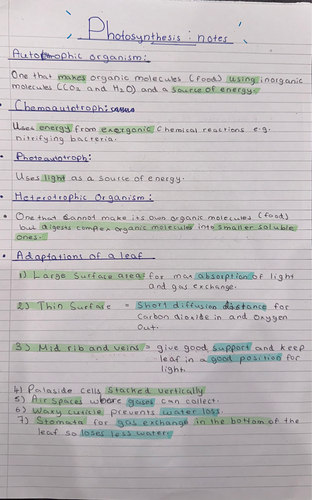 Photosynthesis : notes
Autotrophic organism:
One that makes organic molecules (food) using inorganic
molecules (CO2 and H2O) and a source of energy.
• Chemoautotroph:
Uses energy from exergonic chemical reactions e.g.
nitrifying bacteria.
• Photoautotroph:
Uses light as a source of energy.
• Heterotrophic Organism:
• One that cannot make its own organic molecules (food)
but digests complex organic molecules into smaller soluble
ones.
• Adaptations of a leaf
1) Large Surface area for max absorption of light
and gas exchange.
2) Thin Surface = Short diffusion distance for
Carbon dioxide in and Oxygen
Out.
3) Mid rib and veins = give good support and keep
leaf in a good position for
light.
4) Palaside cells stacked vertically
5) Air spaces where gases can collect.
6) Waxy cuticle prevents water loss
7) Stomata for gas exchange in the bottom of the
leaf so loses less water.